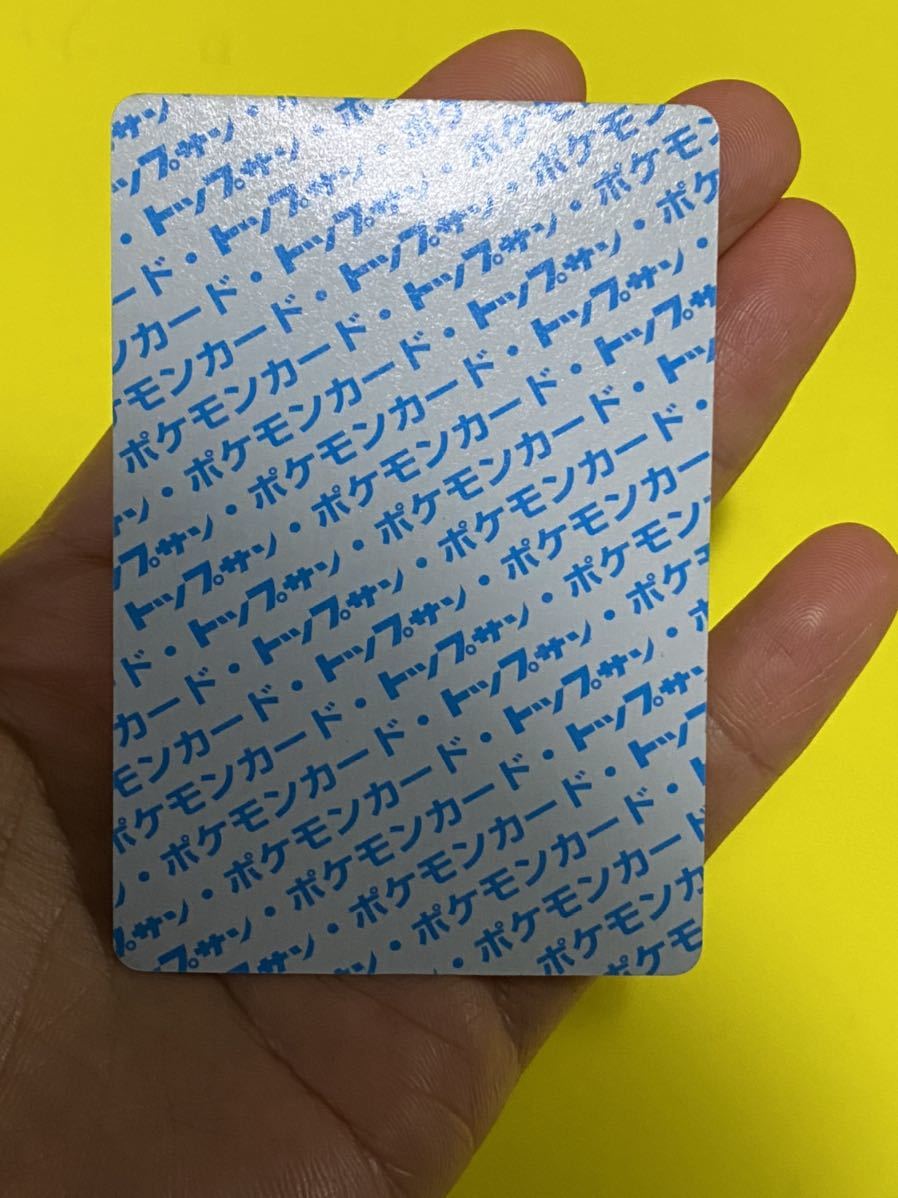 サン・
ップサン・ポ
・トップサン・ポケ
ード・トップサン・ポケモン
ンカード・トップサン・ポケモン
ケモンカード・トップサン・ポケ
ポケモンカード・トップサン・
ン・ポケモンカード・トップサン
プサン・ポケモンカード・トップ
トップサン・ポケモンカード・トッ
ド・トップサン・ポケモンカード・
カード・トップサン・ポケモンカー
モンカード・トップサン・ポケモン
ポケモンカード・トップサン・ポケ
・ポケモンカード・トップサン・
ン・ポケモンカード・トップサン
プサン・ポケモンカード・トッ
プサン・ポケモンカード・
・ポケモンカード
・ポケモンカ
ポケモ